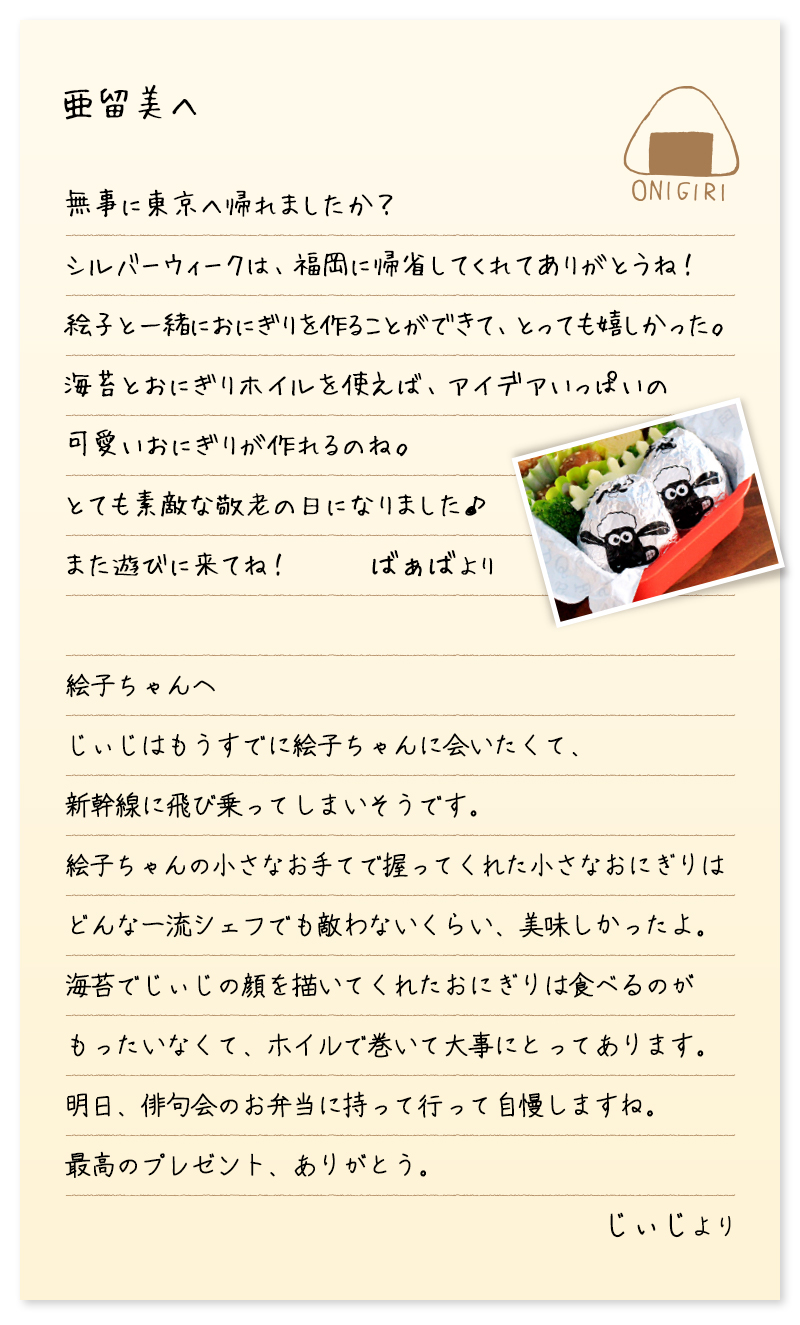 亜留美へ
ONIGIRI
無事に東京へ帰れましたか？
シルバーウィークは、福岡に帰省してくれてありがとうね！
絵子と一緒におにぎりを作ることができて、とっても嬉しかった。
海苔とおにぎりホイルを使えば、アイデアいっぱいの
可愛いおにぎりが作れるのね。
とても素敵な敬老の日になりました♪
また遊びに来てね！ ばぁばより
絵子ちゃんへ
じぃじはもうすでに絵子ちゃんに会いたくて、
新幹線に飛び乗ってしまいそうです。
絵子ちゃんの小さなお手てで握ってくれた小さなおにぎりは
どんな一流シェフでも敵わないくらい、美味しかったよ。
海苔でじぃじの顔を描いてくれたおにぎりは食べるのが
もったいなくて、ホイルで巻いて大事にとってあります。
明日、俳句会のお弁当に持って行って自慢しますね。
最高のプレゼント、ありがとう。
じぃじより